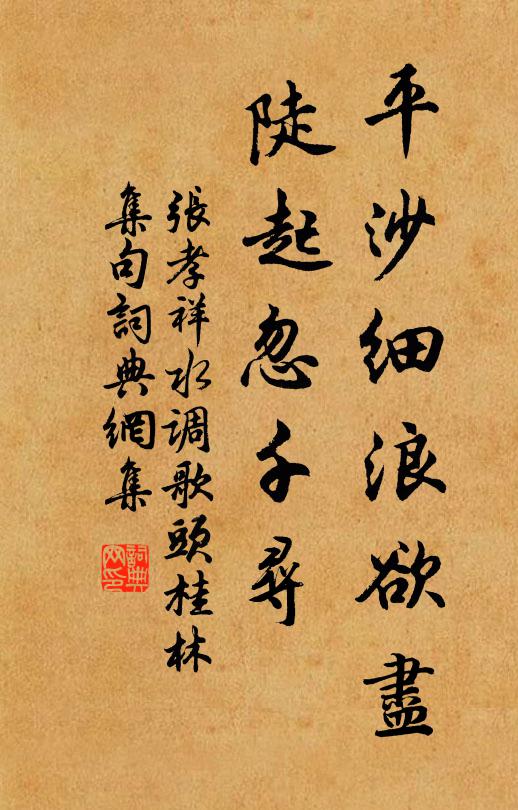 平沙細浪欲盡
陡起忽千尋
張孝祥水調歌頭桂林
集句詞典網集
詞典
网印